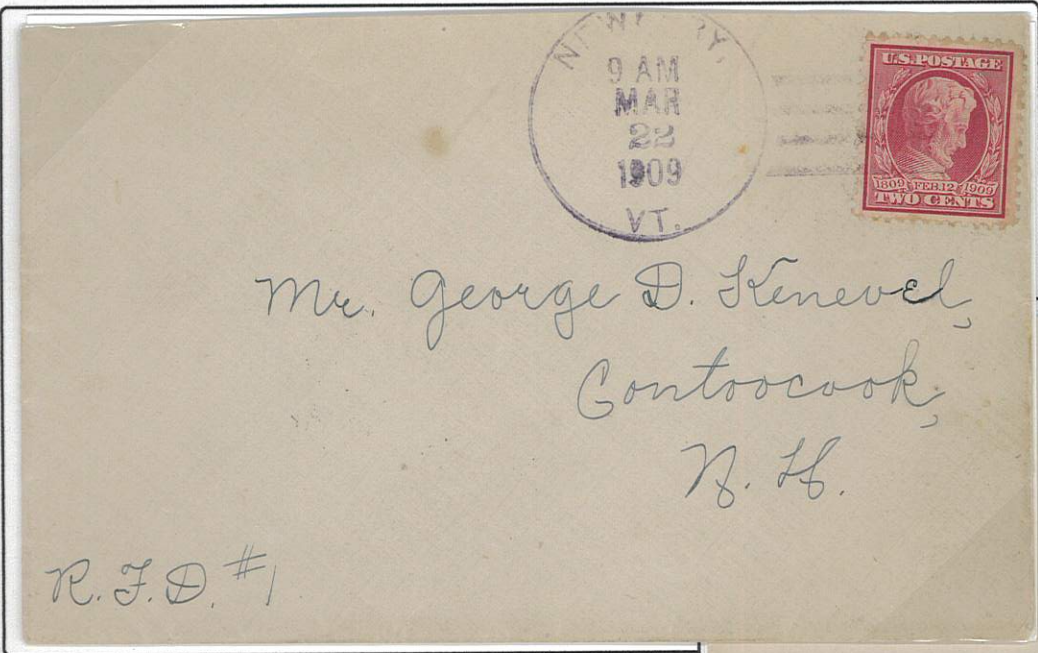 9 AM
MAR
22
1909
VT.
U.S. POSTAGE
1809 FEB. 12 1909
TWO CENTS
Mr. George D. Kenevel,
Contoocook,
N. H.
R. F. D. #1